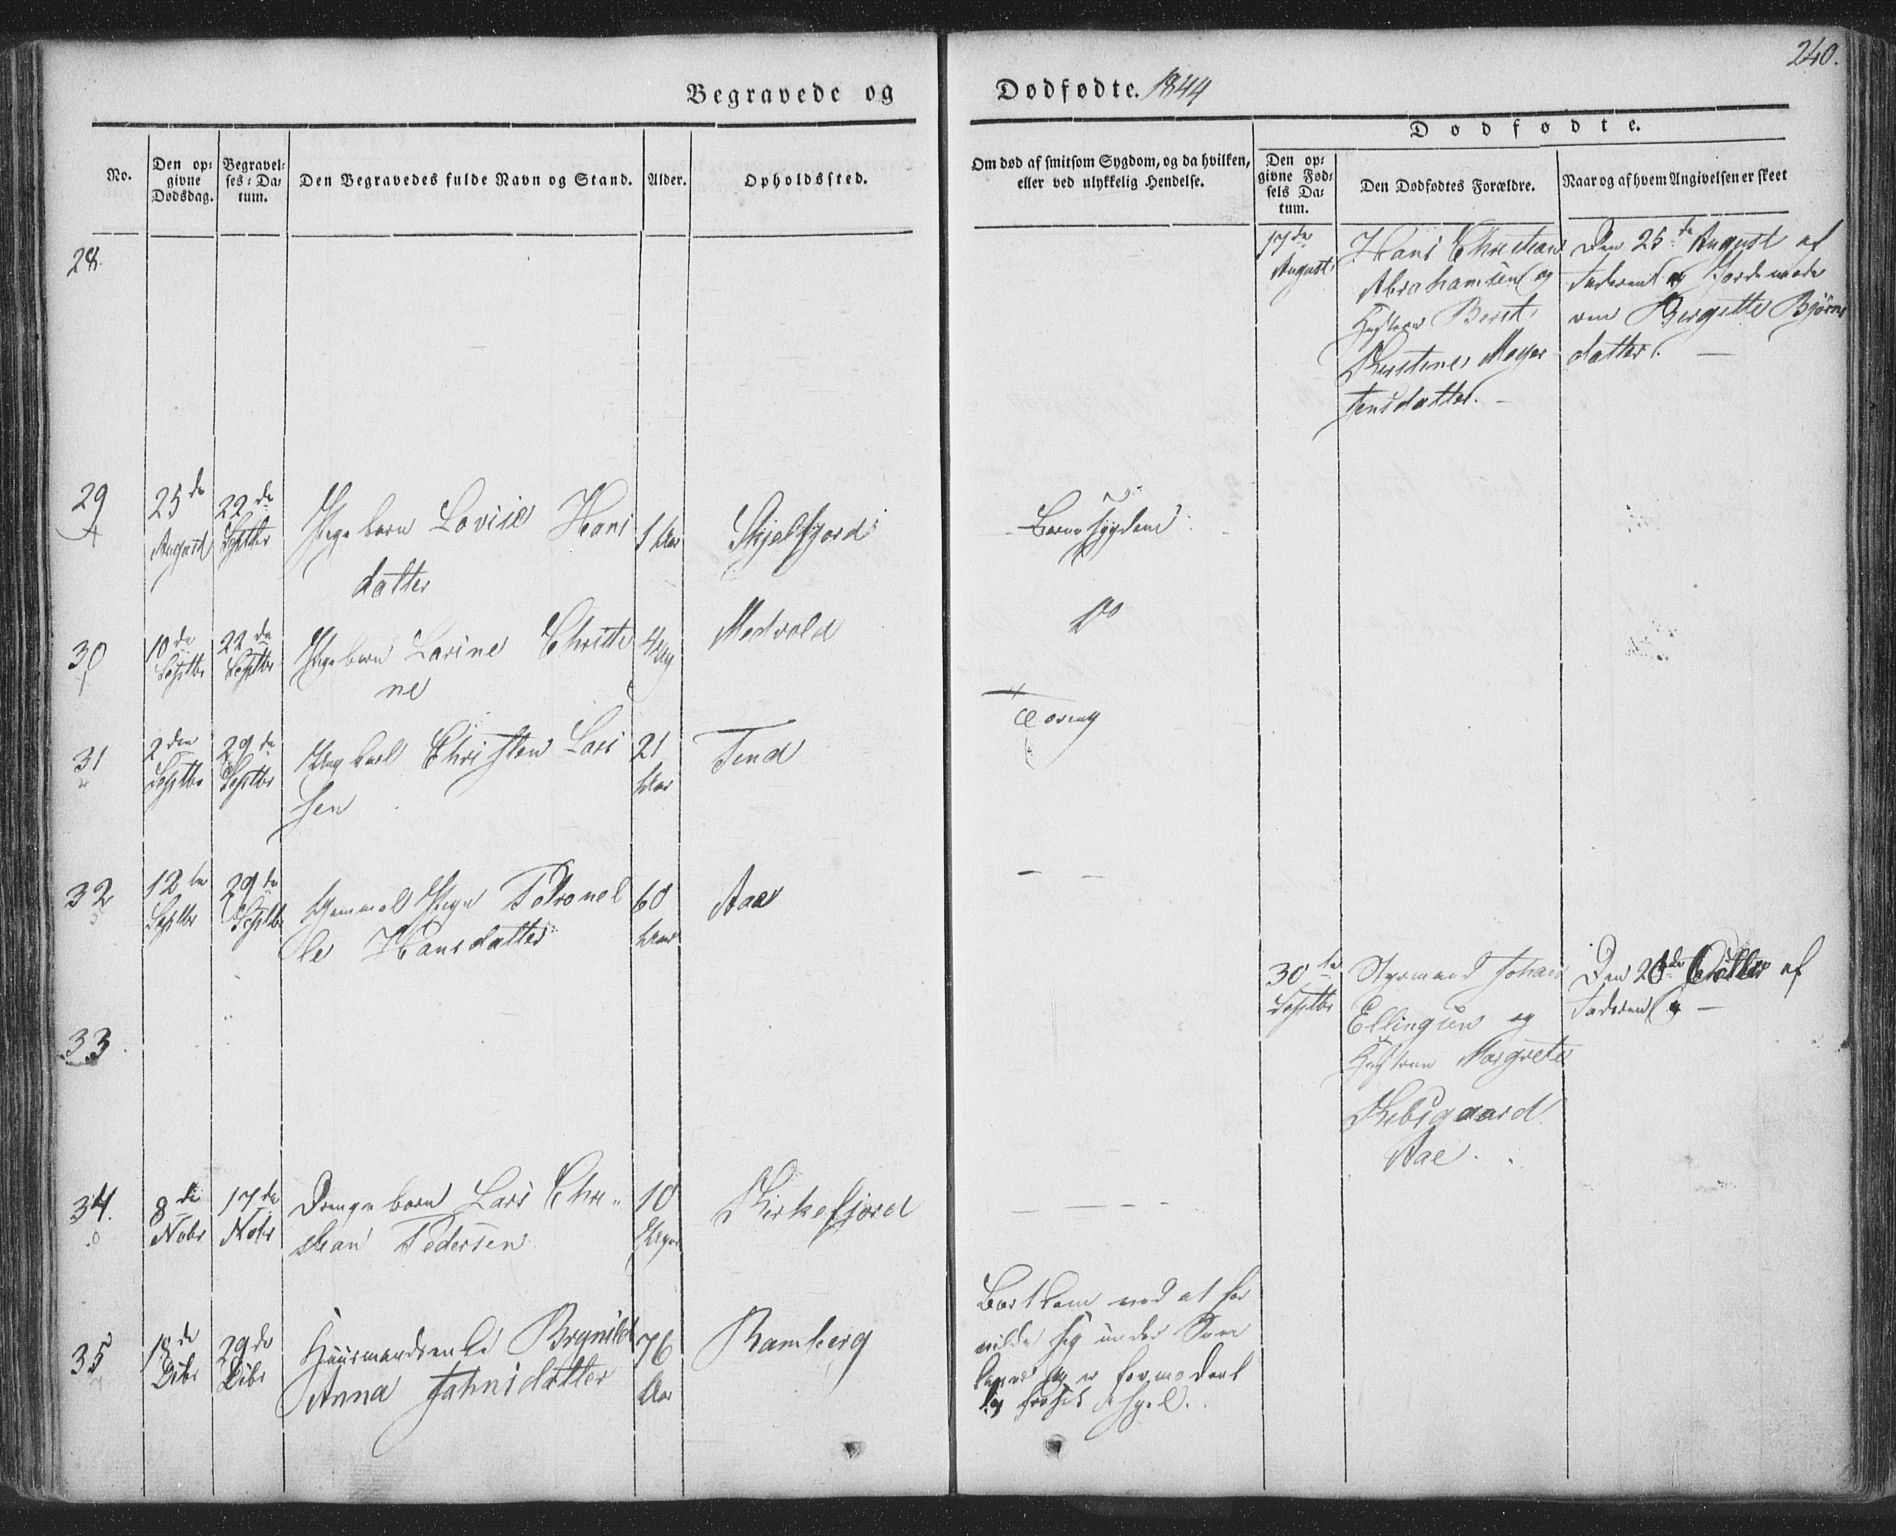 240.
Begravede og Dødfødte. 1844
No.
Den op-
givne
Dødsdag.
Begravel-
ses-Da-
tum.
Den Begravedes fulde Navn og Stand.
Alder.
Opholdssted.
Om død af smitsom Sygdom, og da hvilken,
eller ved ulykkelig Hendelse.
Dødfødte.
Den op-
givne Fød-
sels Da-
tum.
Den Dødfødtes Forældre.
Naar og af hvem Angivelsen er skeet
28.
17de
August
Hans Christian
Abrahamsen og
Berit
Kirstine Meyer
Jensdatter.
Den 25de August af
Faderen og Jordemode
ren Birgitte Bjørns
datter.
29
25de
August
22de
Septbr
Pigebarn Lovise Hans
datter
1 Aar
Skjelfjord
Barnesygdom
30
10de
Septbr
22de
Septbr
Pigebarn Larine Christi
ne
Medvold
Do
31
2den
Septbr
29de
Septbr
Ungkarl Christen Lars
sen
21
Aar
Tind
32
12te
Septbr
29de
Septbr
Gammel Pige Petronel
le Hansdatter
60
Aar
Aae
33
30te
Septbr
Styrmand Johan
Ellingsen og
Margrete
Kibsgaard
Aae.
Den 26de Octbr af
Faderen
34.
8de
Nobr
17de
Nobr
Drengebarn Lars Chri-
stian Pedersen
10
Kirkefjord
35
18de
Dcbr
29de
Dcbr
Huusmandsenke Brynild
Anna Jahnsdatter
76
Aar
Ramberg
Bortkom ved at for
vilde sig under Snee
og er formodent
lig frosset ihjel.